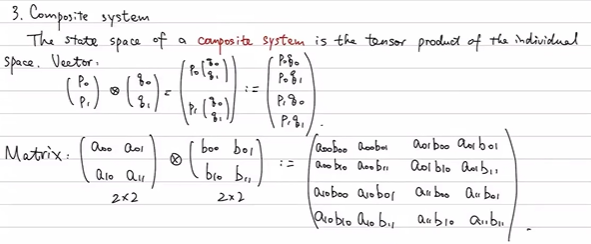 3. Composite system
The state space of a composite system is the tensor product of the individual
space. Vector:
(p₀ p₁) ⊗ (q₀ q₁) = (p₀(q₀ q₁) p₁(q₀ q₁)) := (p₀q₀ p₀q₁ p₁q₀ p₁q₁).
Matrix: (a₀₀ a₀₁ a₁₀ a₁₁) ⊗ (b₀₀ b₀₁ b₁₀ b₁₁) := (a₀₀b₀₀ a₀₀b₀₁ a₀₁b₀₀ a₀₁b₀₁
a₀₀b₁₀ a₀₀b₁₁ a₀₁b₁₀ a₀₁b₁₁
a₁₀b₀₀ a₁₀b₀₁ a₁₁b₀₀ a₁₁b₀₁
a₁₀b₁₀ a₁₀b₁₁ a₁₁b₁₀ a₁₁b₁₁).
2×2 2×2